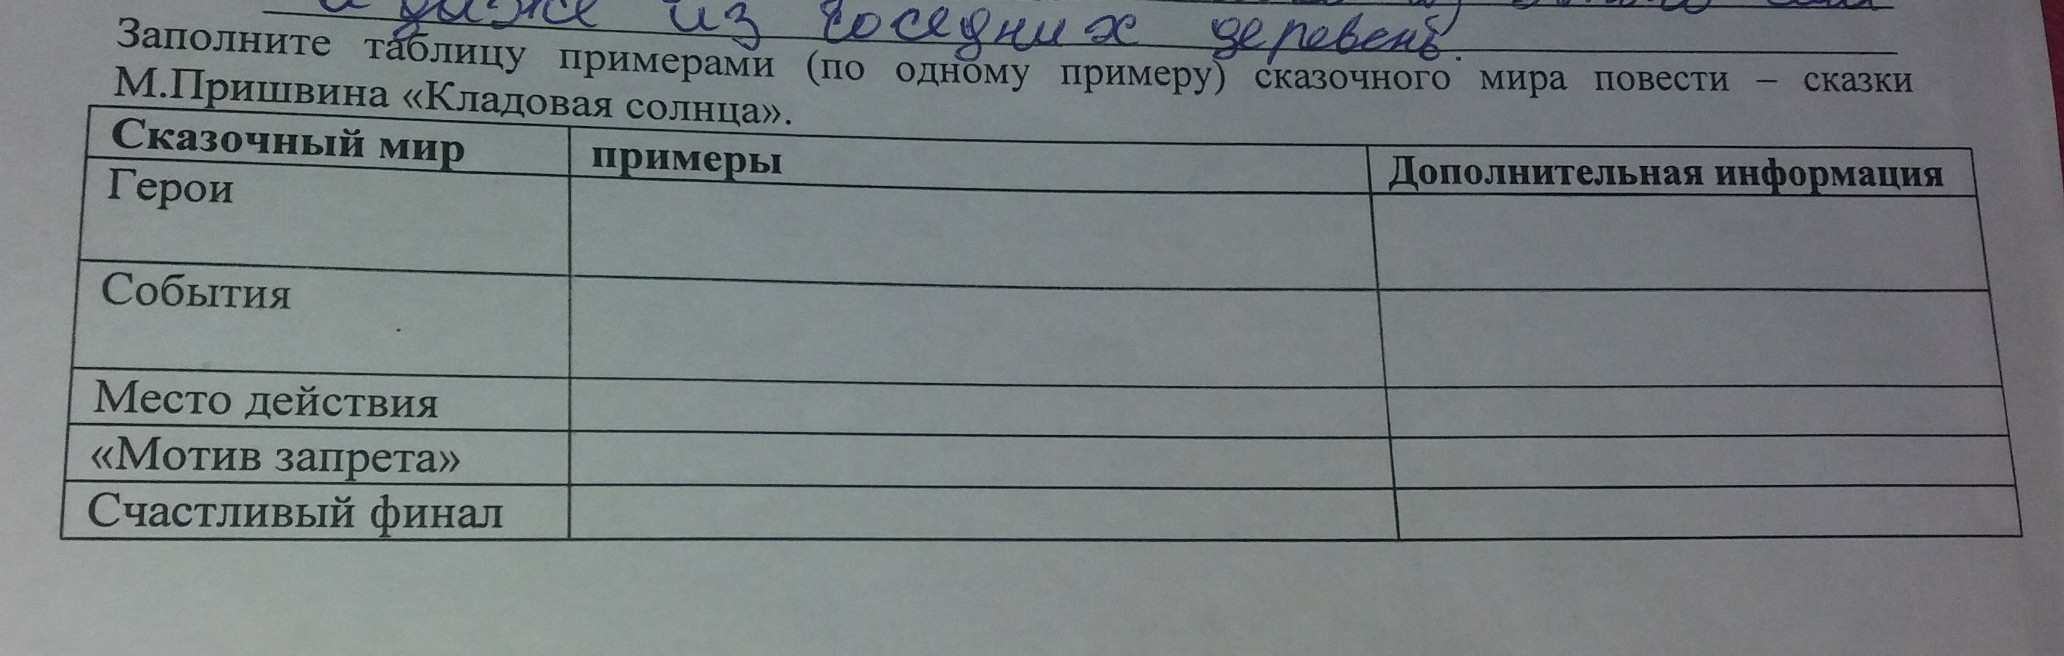 и даже из соседних деревень.
Заполните таблицу примерами (по одному примеру) сказочного мира повести – сказки
М.Пришвина «Кладовая солнца».
Сказочный мир примеры Дополнительная информация
Герои
События
Место действия
«Мотив запрета»
Счастливый финал